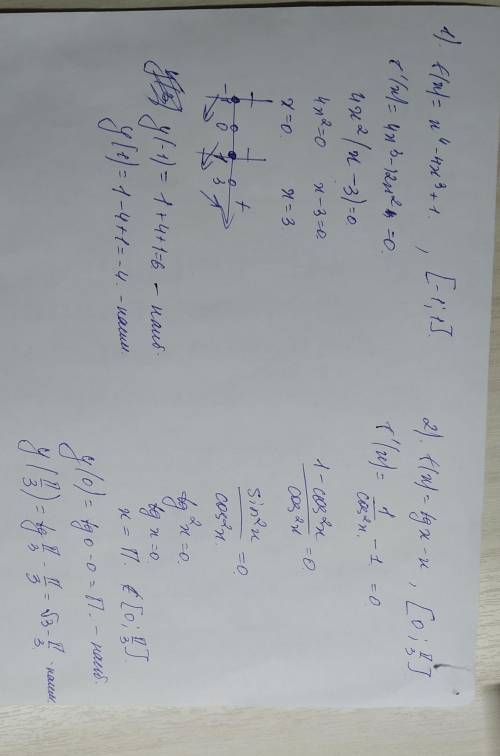 1). f(x) = x⁴-4x³+1. , [-1;1].
f'(x) = 4x³-12x² = 0.
4x²(x-3)=0.
4x²=0 x-3=0
x=0. x=3
- - +
-1 0 1 3
y(-1) = 1+4+1=6 - наиб.
y(1) = 1-4+1=-4. - наим
2). f(x) = tgx-x, [0; π/3]
f'(x) = 1/cos²x - 1 = 0.
1-cos²x/cos²x = 0.
sin²x/cos²x = 0.
tg²x=0.
tgx=0.
x = π. ∈ [0; π/3].
y(0) = tg0-0 = π. - наиб.
y(π/3) = tg π/3 - π/3 = √3 - π/3 - наим.